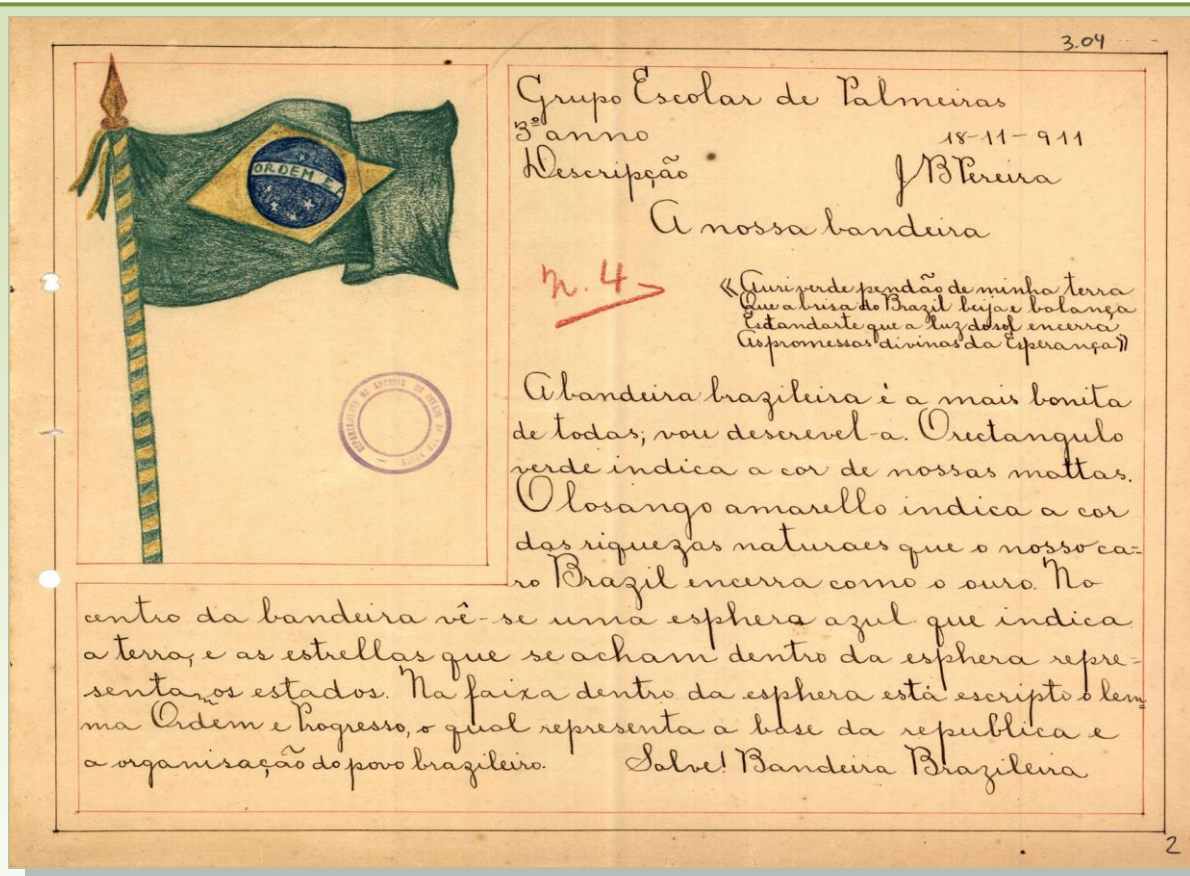 3.04
ORDEM E
Grupo Escolar de Palmeiras
3º anno
18-11-911
Descripção
J B Pereira
A nossa bandeira
n. 4
«Auri verde pendão de minha terra
Que a brisa do Brazil beija e balança
Estandarte que a luz do sol encerra
As promessas divinas da Esperança»
A bandeira brazileira é a mais bonita
de todas; vou descrevel-a. O rectangulo
verde indica a cor de nossas mattas.
O losango amarello indica a cor
das riquezas naturaes que o nosso ca=
ro Brazil encerra como o ouro. No
centro da bandeira vê-se uma esphera azul que indica
a terra, e as estrellas que se acham dentro da esphera repre=
sentam os estados. Na faixa dentro da esphera está escripto o lem=
ma Ordem e Progresso, o qual representa a base da republica e
a organisação do povo brazileiro. Salve! Bandeira Brazileira
DO ESTADO
2